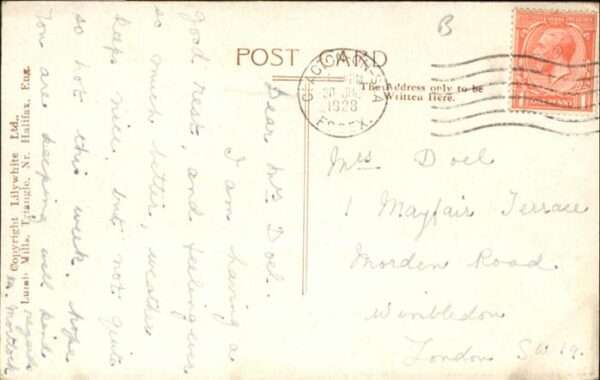 POST CARD
B
The Address only to be
Written Here.
CLACTON-ON-SEA
1928
ESSEX.
ONE PENNY
Dear Mrs Doel.
I am having a
good rest, and feeling ever
so much better, weather
keeps nice, but not quite
so hot this week. hope
you are keeping well kind
regards
Mortlock
Mrs Doel
1 Mayfair Terrace
Morden Road
Wimbledon
London S.W.19.
Copyright Lilywhite Ltd.,
Lumb Mills, Triangle, Nr. Halifax, Eng.